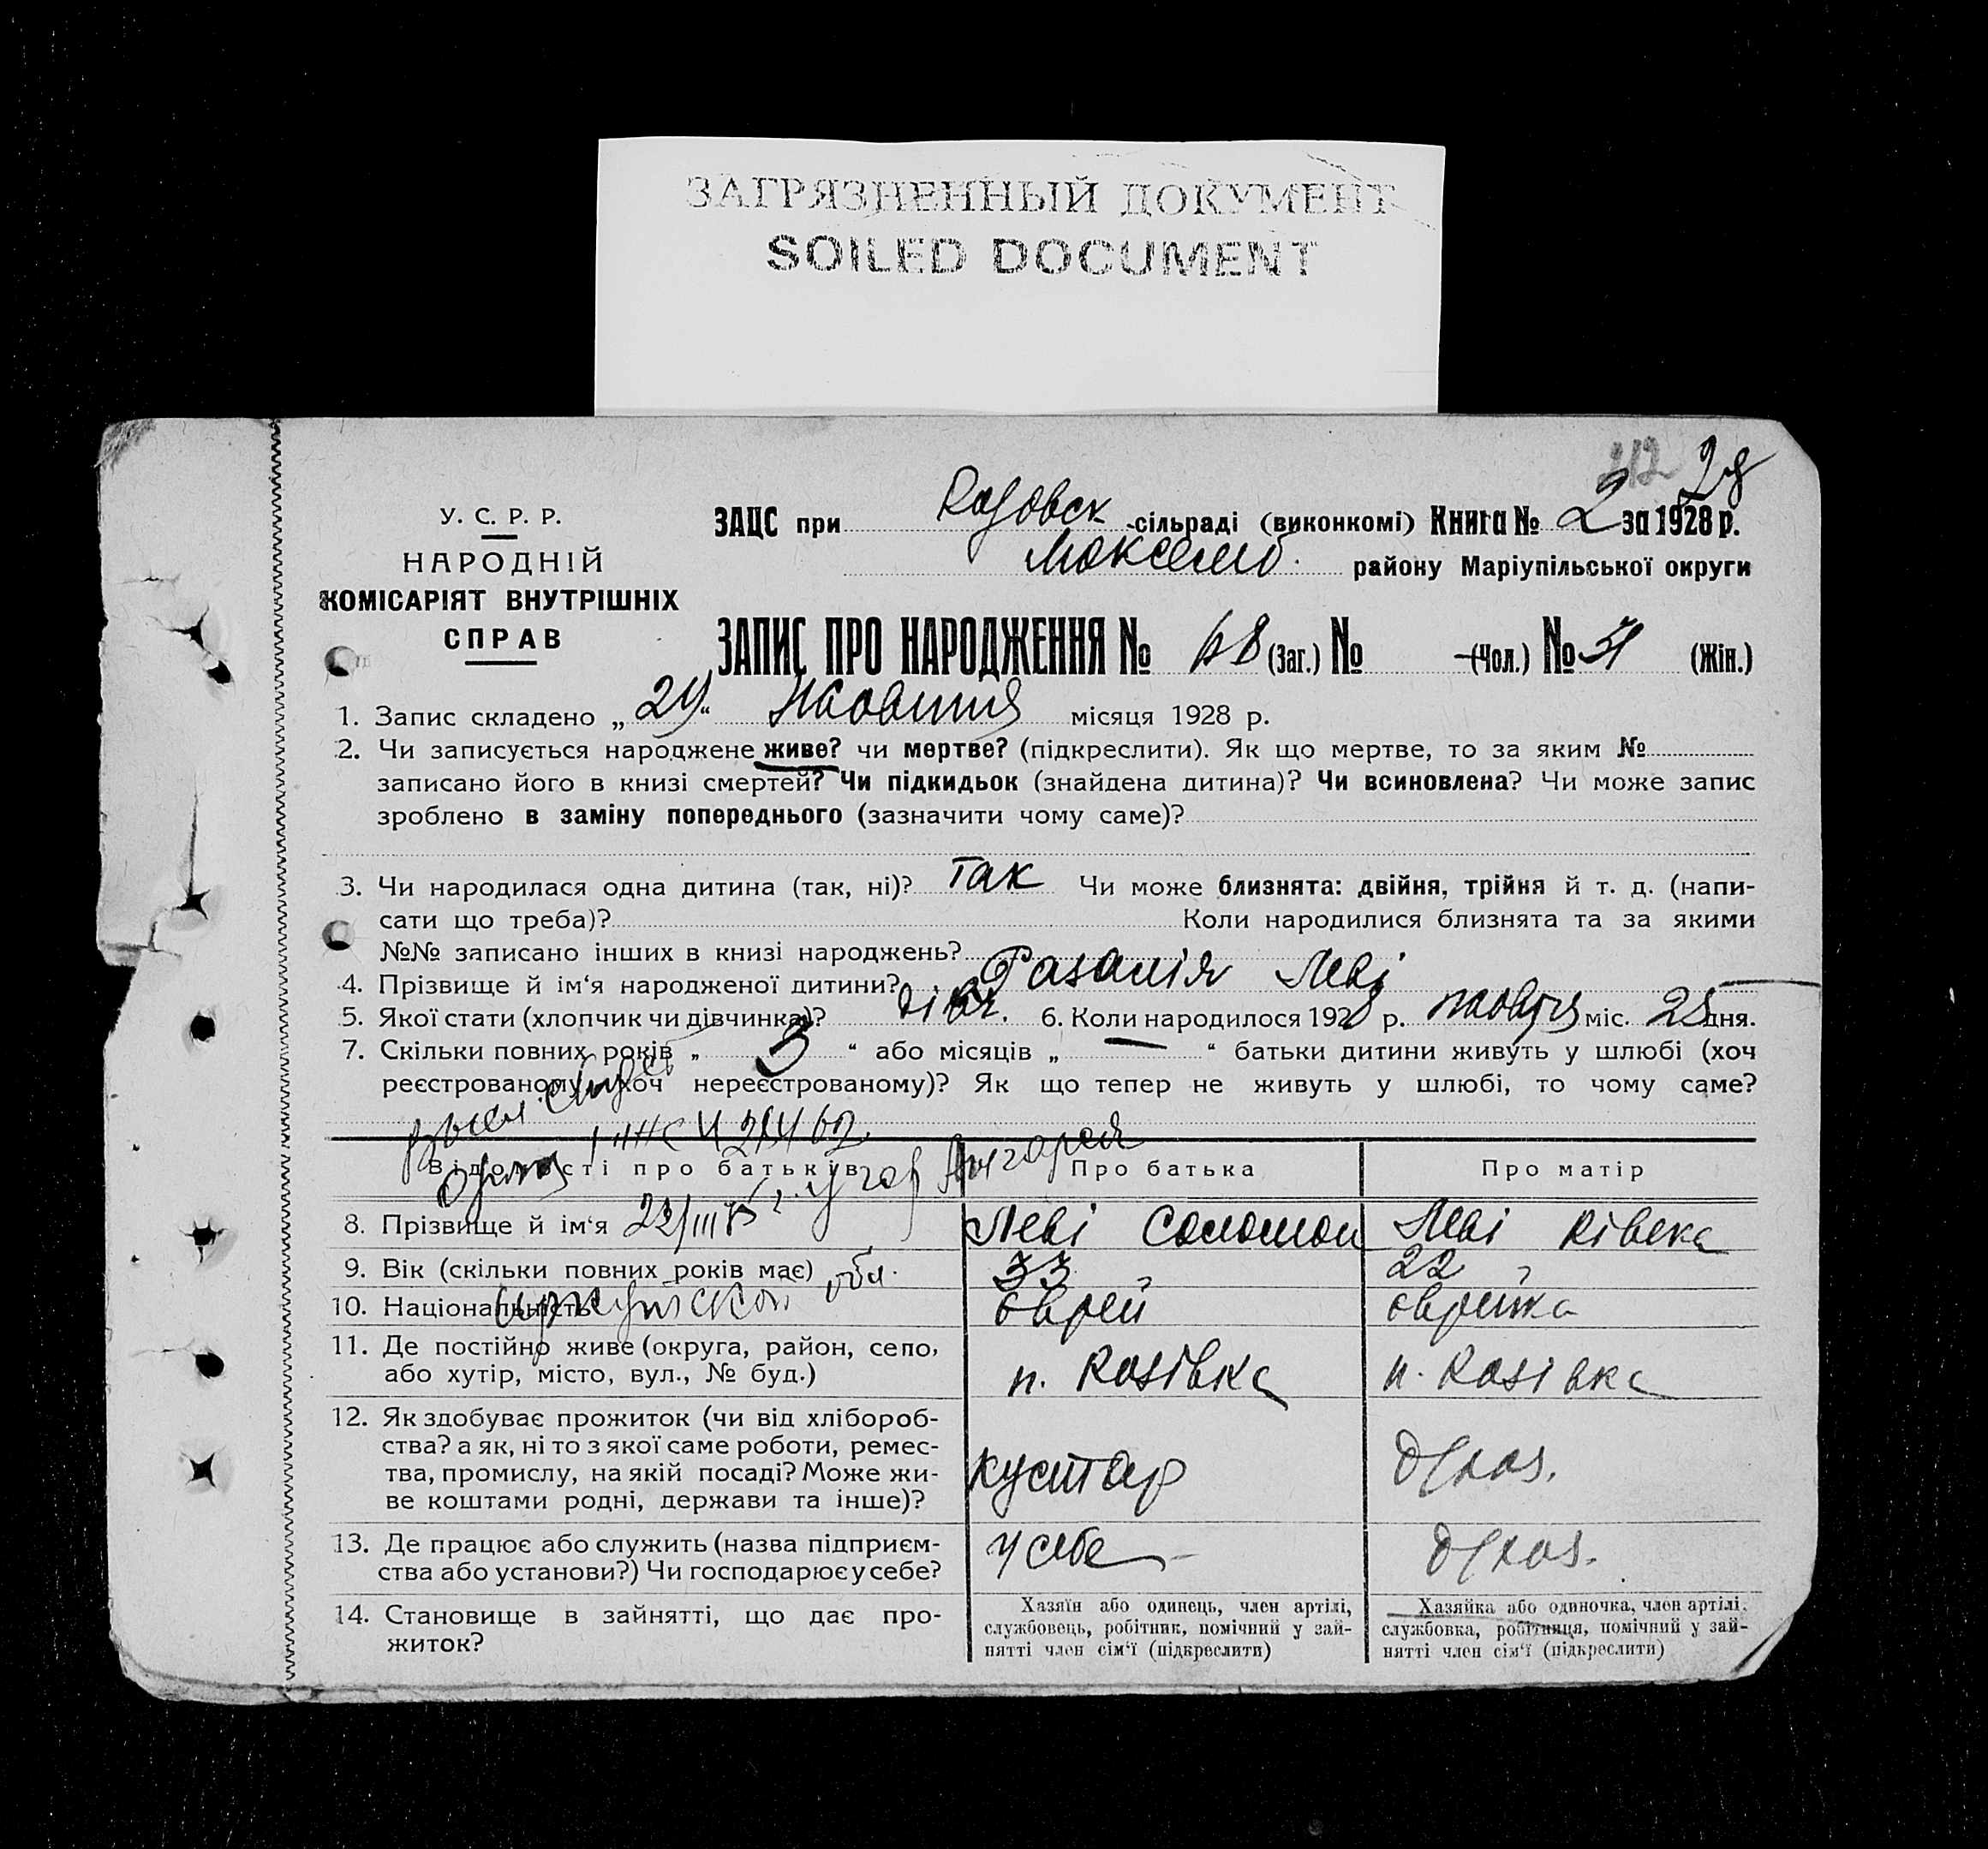 ЗАГРЯЗНЕННЫЙ ДОКУМЕНТ
SOILED DOCUMENT
28
У. С. Р. Р.
НАРОДНІЙ
КОМІСАРІЯТ ВНУТРІШНІХ
СПРАВ
ЗАЦС при Розовск сільраді (виконкомі) Книга № 2 за 1928 р.
району Маріупільської округи
ЗАПИС ПРО НАРОДЖЕННЯ № 68 (Заг.) № — (Чол.) № 31 (Жін.)
1. Запис складено „ 29 “ Жовтня місяця 1928 р.
2. Чи записується народжене живе? чи мертве? (підкреслити). Як що мертве, то за яким №
записано його в книзі смертей? Чи підкидьок (знайдена дитина)? Чи всиновлена? Чи може запис
зроблено в заміну попереднього (зазначити чому саме)?
3. Чи народилася одна дитина (так, ні)? так Чи може близнята: двійня, трійня й т. д. (напи-
сати що треба)? Коли народилися близнята та за якими
№№ записано інших в книзі народжень?
4. Прізвище й ім‘я народженої дитини? Разалія Леві
5. Якої стати (хлопчик чи дівчинка)? дівч. 6. Коли народилося 1928 р. жовтня міс. 25 дня.
7. Скільки повних років „ 3 “ або місяців „ — “ батьки дитини живуть у шлюбі (хоч
реєстрованому, хоч нереєстрованому)? Як що тепер не живуть у шлюбі, то чому саме?
Відомості про батьків Про батька Про матір
8. Прізвище й ім‘я Леві Соломон Леві Рівека
9. Вік (скільки повних років має) обл. 33 22
10. Національність Иркутской єврей єврейка
11. Де постійно живе (округа, район, село,
або хутір, місто, вул., № буд.) п. Розівка п. Розівка
12. Як здобуває прожиток (чи від хлібороб-
ства? а як, ні то з якої саме роботи, ремес-
тва, промислу, на якій посаді? Може жи-
ве коштами родні, держави та інше)? кустар д/хаз.
13. Де працює або служить (назва підприєм-
ства або установи?) Чи господарює у себе? у себе д/хаз.
14. Становище в зайнятті, що дає про-
житок?
Хазяїн або одинець, член артілі,
службовець, робітник, помічний у зай-
нятті член сім‘ї (підкреслити)
Хазяйка або одиночка, член артілі,
службовка, робітниця, помічний у зай-
нятті член сім‘ї (підкреслити)